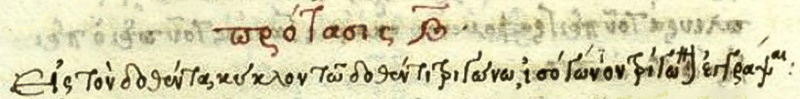 πρότασις Β
Εἰς τὸν δοθέντα κύκλον τῶ δοθέντι τριγώνω, ἰσογώνιον τρίγωνον ἐγγράψαι: